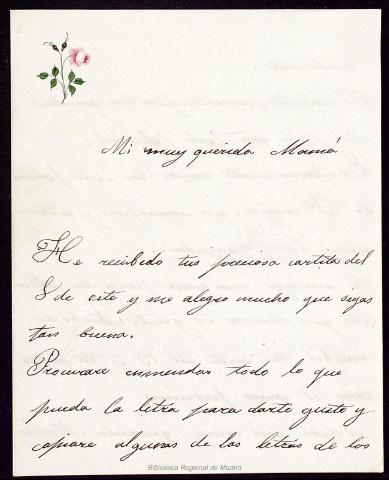 Mi muy querida Mamá
He recibido tus preciosa cartita del
8 de este y me alegro mucho que sigas
tan buena.
Procurare enmendar todo lo que
pueda la letra para darte gusto y
copiare algunas de las letras de los
Biblioteca Regional de Madrid